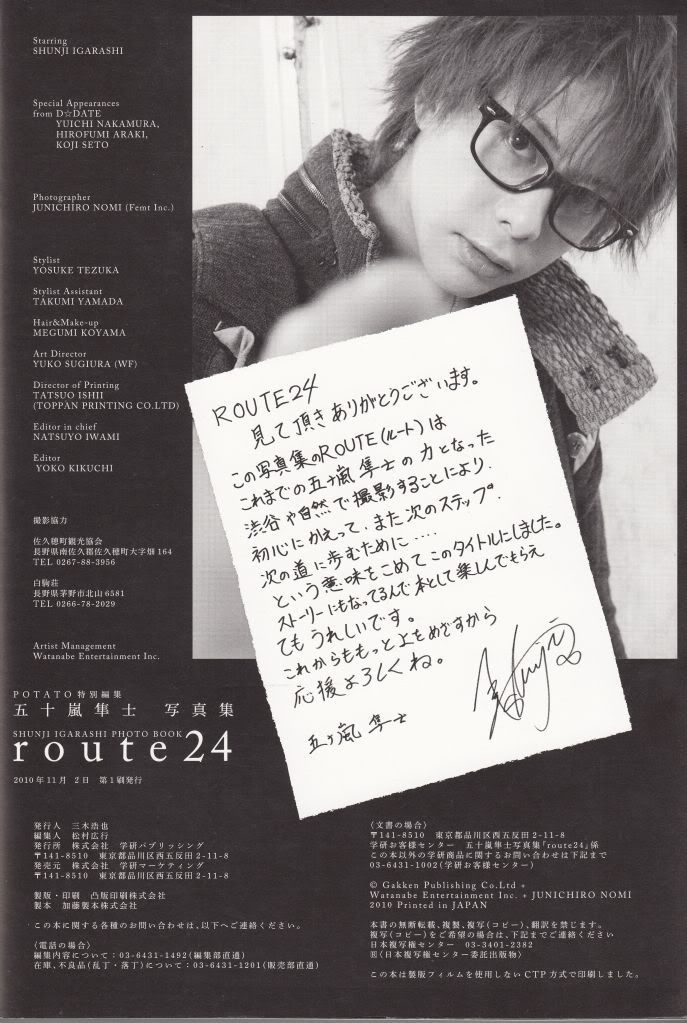 Starring
SHUNJI IGARASHI
Special Appearances
from D☆DATE
YUICHI NAKAMURA,
HIROFUMI ARAKI,
KOJI SETO
Photographer
JUNICHIRO NOMI (Femt Inc.)
Stylist
YOSUKE TEZUKA
Stylist Assistant
TAKUMI YAMADA
Hair&Make-up
MEGUMI KOYAMA
Art Director
YUKO SUGIURA (WF)
Director of Printing
TATSUO ISHII
(TOPPAN PRINTING CO.LTD)
Editor in chief
NATSUYO IWAMI
Editor
YOKO KIKUCHI
撮影協力
佐久穂町観光協会
長野県南佐久郡佐久穂町大字畑164
TEL 0267-88-3956
白駒荘
長野県茅野市北山6581
TEL 0266-78-2029
Artist Management
Watanabe Entertainment Inc.
ROUTE24
見て頂きありがとうございます。
この写真集のROUTE(ルート)は
これまでの五十嵐隼士の力となった
渋谷や自然で撮影することにより、
初心にかえって、また次のステップ、
次の道に歩むために....
という意味をこめてこのタイトルにしました。
ストーリーにもなってるんで本として楽しんでもらえ
てもうれしいです。
これからももっと上をめざすから
応援よろしくね。
五十嵐隼士
POTATO特別編集
五十嵐隼士 写真集
SHUNJI IGARASHI PHOTO BOOK
route24
2010年11月 2日 第1刷発行
発行人 三木浩也
編集人 松村広行
発行所 株式会社 学研パブリッシング
〒141-8510 東京都品川区西五反田2-11-8
発売元 株式会社 学研マーケティング
〒141-8510 東京都品川区西五反田2-11-8
製版・印刷 凸版印刷株式会社
製本 加藤製本株式会社
この本に関する各種のお問い合わせは、以下へご連絡ください。
〈電話の場合〉
編集内容について:03-6431-1492(編集部直通)
在庫、不良品(乱丁・落丁)について:03-6431-1201(販売部直通)
〈文書の場合〉
〒141-8510 東京都品川区西五反田2-11-8
学研お客様センター 五十嵐隼士写真集「route24」係
この本以外の学研商品に関するお問い合わせは下記まで
03-6431-1002(学研お客様センター)
© Gakken Publishing Co.Ltd +
Watanabe Entertainment Inc. + JUNICHIRO NOMI
2010 Printed in JAPAN
本書の無断転載、複製、複写(コピー)、翻訳を禁じます。
複写(コピー)をご希望の場合は、下記までご連絡ください
日本複写権センター 03-3401-2382
R〈日本複写権センター委託出版物〉
この本は製版フィルムを使用しないCTP方式で印刷しました。